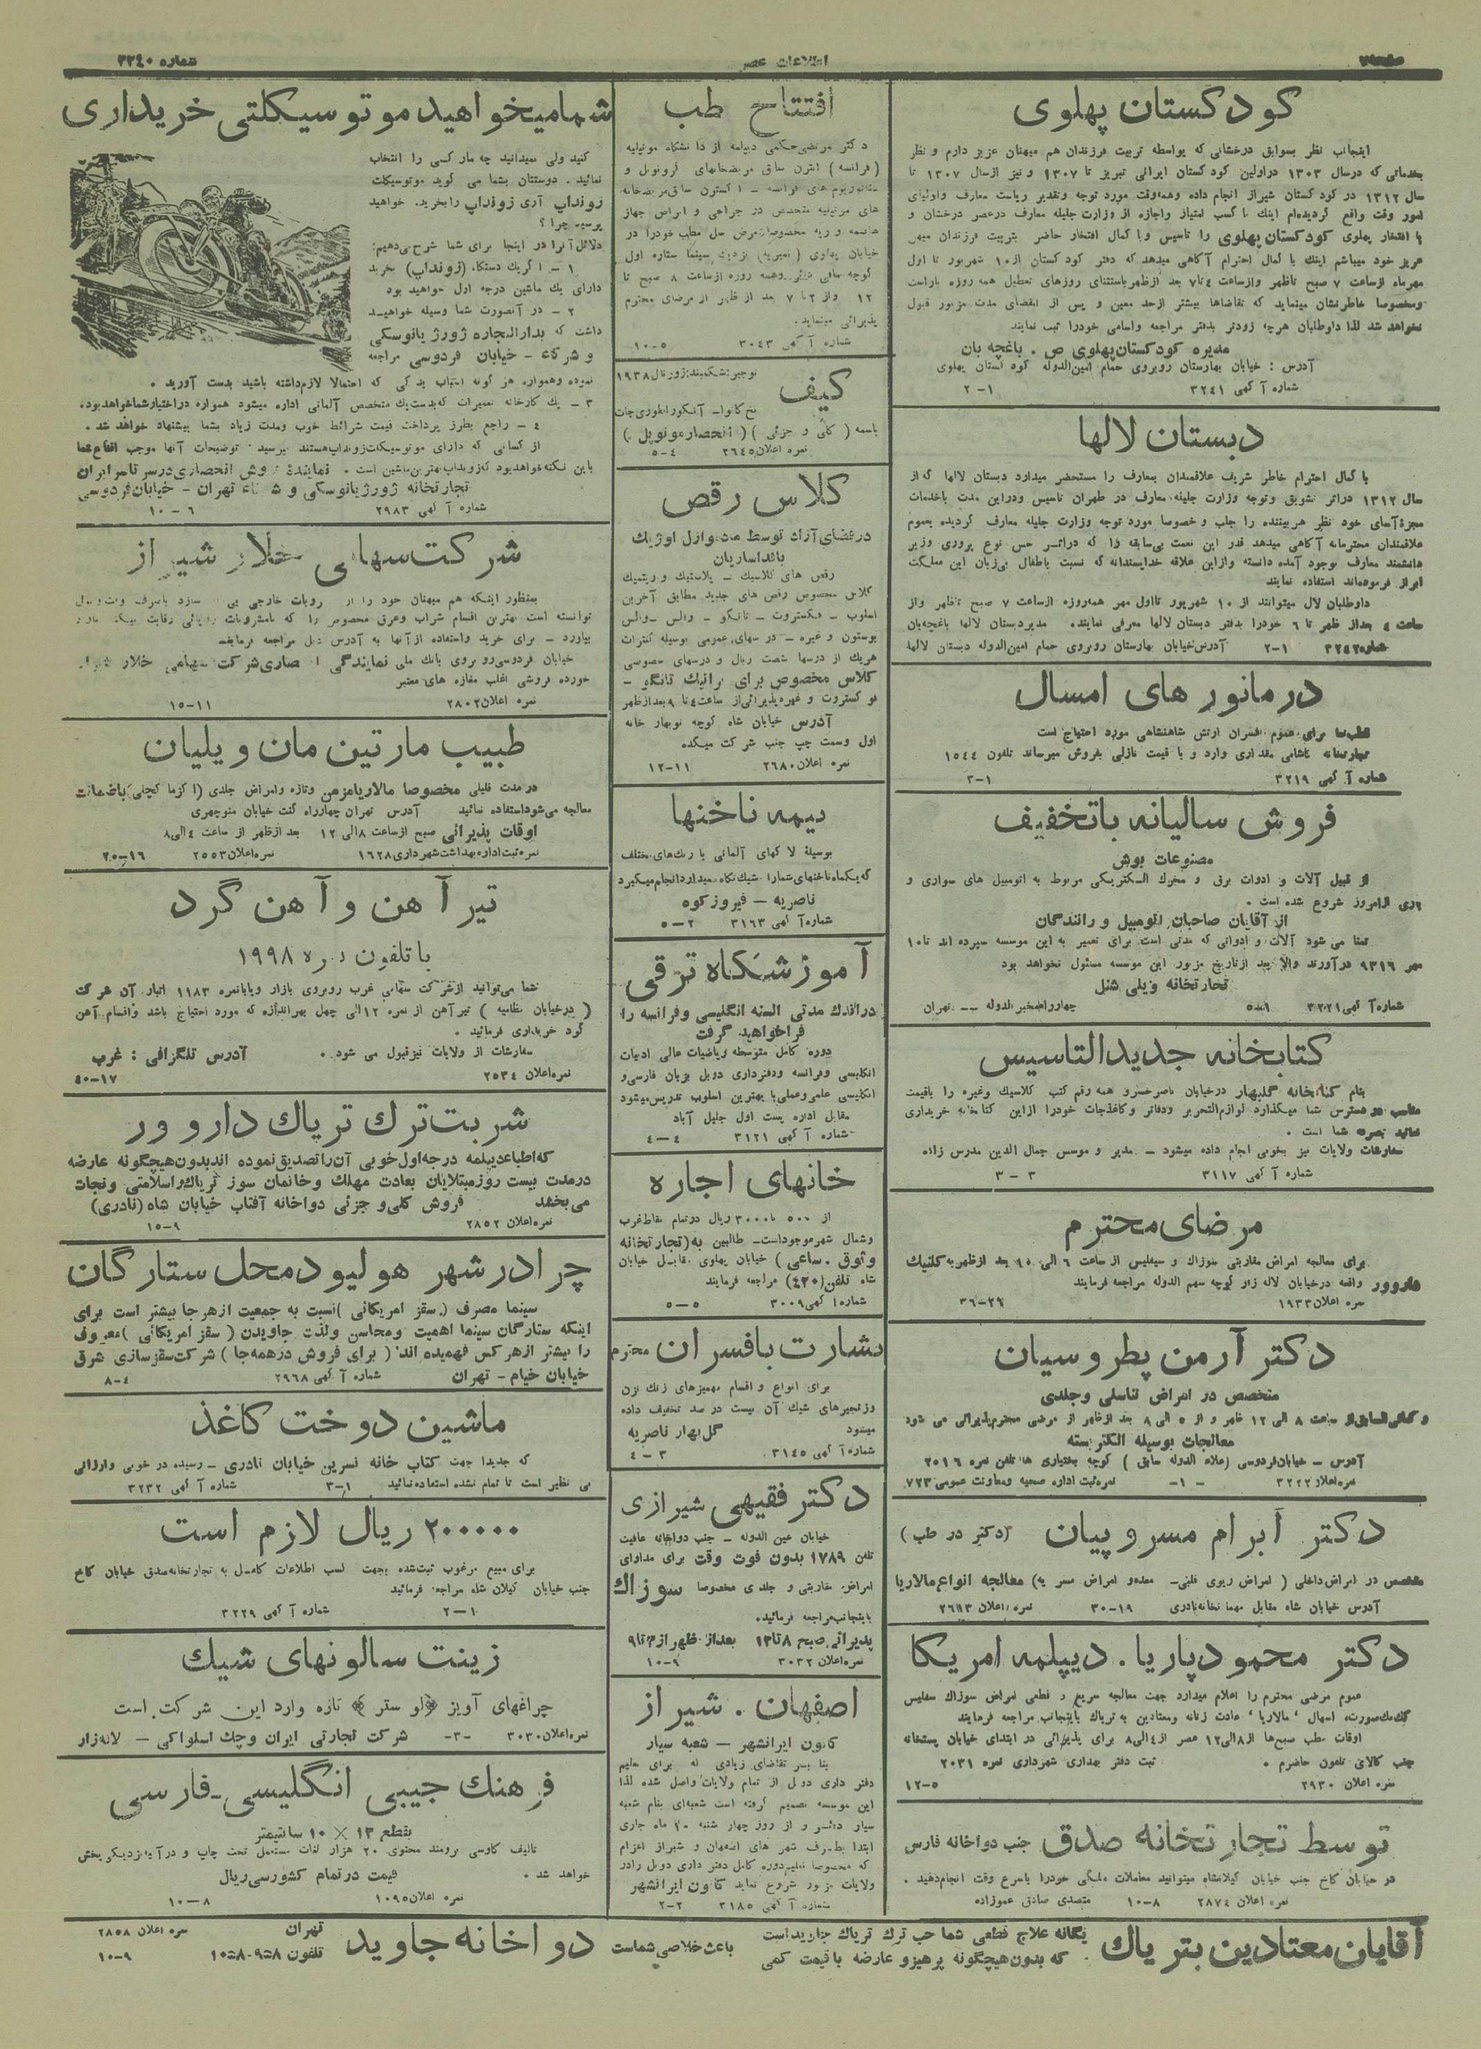 اطلاعات عصر
شماره ۳۲۴۰
کودکستان پهلوی
اینجانب نظر بسوابق درخشانی که بواسطه تربیت فرزندان هم میهنان عزیز دارم و نظر
بخدماتی که درسال ۱۳۰۳ دراولین کودکستان ایرانی تبریز تا ۱۳۰۷ و نیز ازسال ۱۳۰۷ تا
سال ۱۳۱۲ در کودکستان شیراز انجام داده وهمه‌وقت مورد توجه وتقدیر ریاست معارف واولیای
امور وقت واقع گردیده‌ام اینك با کسب امتیاز واجازه از وزارت جلیله معارف درعصر درخشان و
با افتخار پهلوی کودکستان پهلوی را تاسیس وبا کمال افتخار حاضر بتربیت فرزندان میهن
عزیز خود میباشم اینك با کمال احترام آگاهی میدهد که دفتر کودکستان از ۱۰ شهریور تا اول
مهرماه ازساعت ۷ صبح تاظهر وازساعت ۴ تا ۷ بعد ازظهر باستثنای روزهای تعطیل همه روزه بازاست
ومخصوصا خاطرنشان مینماید که تقاضاها بیشتر ازحد معین و پس از انقضای مدت مزبور قبول
نخواهد شد لذا داوطلبان هرچه زودتر بدفتر مراجعه واسامی خودرا ثبت نمایند
مدیره کودکستان پهلوی ص . باغچه بان
آدرس : خیابان بهارستان روبروی حمام امین‌الدوله کودکستان پهلوی
شماره آگهی ۳۲۴۱ ۲-۱
دبستان لالها
با کمال احترام خاطر شریف علاقمندان بمعارف را مستحضر میدارد دبستان لالها که از
سال ۱۳۱۲ دراثر تشویق وتوجه وزارت جلیله معارف در طهران تاسیس ودراین مدت باخدمات
معجزه‌آسای خود نظر هر بیننده را جلب و خصوصا مورد توجه وزارت جلیله معارف گردیده بعموم
علاقمندان محترمانه آگاهی میدهد قدر این نعمت بی‌سابقه را که دراثر حس نوع پروری وزیر
دانشمند معارف بوجود آمده دانسته وازاین علاقه خدایسندانه که نسبت باطفال بی‌زبان این مملکت
ابراز فرموده‌اند استفاده نمایند
داوطلبان لال میتوانند از ۱۰ شهریور تااول مهر همه‌روزه ازساعت ۷ صبح تاظهر واز
ساعت ۴ بعداز ظهر تا ۶ خودرا بدفتر دبستان لالها معرفی نمایند. مدیردبستان لالها باغچه‌بان
شماره ۳۲۴۲ ۲-۱ آدرس‌خیابان بهارستان روبروی حمام امین‌الدوله دبستان لالها
درمانورهای امسال
قطب‌نما برای عموم افسران ارتش شاهنشاهی مورد احتیاج است
تجارتخانه کاشانی مقداری وارد و با قیمت نازلی بفروش میرساند تلفون ۱۵۴۴
شماره آگهی ۳۲۱۹ ۳-۱
فروش سالیانه باتخفیف
مصنوعات بوش
از قبیل آلات و ادوات برق و محرك الکتریکی مربوط به اتومبیل های سواری و
باری ازامروز شروع شده است .
از آقایان صاحبان اتومبیل و رانندگان
تمنا می شود آلات و ادواتی که مدتی است برای تعمیر به این موسسه سپرده اند تا ۱۰
تجارتخانه ویلی شنل
شماره آگهی ۳۲۲۱ چهارراه مخبرالدوله — تهران
کتابخانه جدیدالتاسیس
بنام کتابخانه گلبهار درخیابان ناصرخسرو همه رقم کتب کلاسیك وغیره را باقیمت
مناسب دردسترس شما میگذارد لوازم‌التحریر ودفاتر وکاغذجات خودرا ازاین کتابخانه خریداری
سفارشات ولایات نیز بخوبی انجام داده میشود — مدیر و موسس جمال الدین مدرس زاده
شماره آگهی ۳۱۱۷ ۳-۳
مرضای محترم
برای معالجه امراض مقاربتی سوزاك و سیفلیس از ساعت ۶ الی ۱۰ بعد ازظهر به کلنیك
فاروور واقعه درخیابان لاله زار کوچه سهم الدوله مراجعه فرمایند
نمره اعلان ۱۹۳۳ ۳۶-۲۹
دکتر آرمن پطروسیان
متخصص در امراض تناسلی وجلدی
وکمافی‌السابق از ساعت ۸ الی ۱۲ ظهر و از ۵ الی ۸ بعد ازظهر از مرضی محترم پذیرائی می شود
معالجات بوسیله الکتریسته
آدرس - خیابان فردوسی (علاء الدوله سابق) کوچه بختیاری ها تلفن نمره ۲۵۱۶
نمره‌اعلان ۳۲۲۲ -۱- نمره‌ثبت اداره صحیه ومعاونت عمومی ۷۲۳
دکتر آبرام مسروپیان (دکتر در طب)
متخصص در امراض‌داخلی ( امراض ریوی قلبی- معده و امراض مسریه) معالجه انواع‌مالاریا
آدرس خیابان شاه مقابل مهمانخانه‌نادری ۳۰-۱۹ نمره‌اعلان ۲۶۱۳
دکتر محمودپاریا . دیپلمه امریکا
عموم مرضی محترم را اعلام میدارد جهت معالجه سریع و قطعی امراض سوزاك سفلیس
کك‌مك‌صورت، اسهال ' مالاریا ' عادت زنانه ومعتادین به تریاك باینجانب مراجعه فرمایند
اوقات مطب صبح‌ها از ۸ الی ۱۲ عصر از ۴ الی ۸ برای پذیرائی در ابتدای خیابان پستخانه
جنب کالای تلفون حاضرم . ثبت دفتر بهداری شهرداری نمره ۲۰۳۱
نمره اعلان ۲۹۳۰ ۱۲-۵
توسط تجارتخانه صدق جنب دواخانه فارس
در خیابان کاخ جنب خیابان کیلانشاه میتوانید معاملات ملکی خودرا باسرع وقت انجام‌دهید.
نمره اعلان ۲۸۷۴ ۱۰-۸ متصدی صادق عموزاده
افتتاح طب
دکتر مرتضی‌حکمی دیپلمه از دانشگاه مونپلیه
(فرانسه) انترن سابق مریضخانهای گرونوبل و
های مونپلیه متخصص در جراحی و امراض جهاز
خیابان پهلوی ( نصیریه) نزدیك سینما ستاره اول
۱۲ و از ۲ تا ۷ بعد از ظهر از مرضای محترم
پذیرائی مینماید.
شماره آگهی ۳۰۴۳ ۱۰-۵
کیف
باسمه ( کلی و جزئی ) ( انحصارمونوپل )
نمره اعلان ۲۶۴۵ ۵-۴
کلاس رقص
درفضای‌آزاد توسط مادموازل اوژیك
باغداساریان
رقص های کلاسیك — پلاستیك و ریتمیك
کلاس مخصوص رقص های جدید مطابق آخرین
اسلوب - فکستروت - تانگو - والس -والس
بوستون و غیره - درسهای عمومی بوسیله کنترات
هریك از درسها شصت ریال و درسهای خصوصی
آدرس خیابان شاه کوچه نوبهار خانه
اول وسمت چپ جنب شرکت میکده
نمره اعلان ۲۶۸۰ ۱۲-۱۱
بیمه ناخنها
بوسیله لاکهای آلمانی با رنك‌های مختلف
که یکماه ناخنهای‌شمارا شیك نگاه میدارد انجام میگیرد
ناصریه - فیروزکوه
شماره آگهی ۳۱۶۳ ۵-۲
آموزشگاه ترقی
دراندك مدتی السنه انگلیسی وفرانسه را
فراخواهید گرفت
دوره کامل متوسطه ریاضیات عالی ادبیات
انگلیسی وفرانسه ودفترداری دوبل بزبان فارسی و
انگلیسی علمی‌وعملی با بهترین اسلوب تدریس‌میشود
مقابل اداره پست اول جلیل آباد
شماره آگهی ۳۱۲۱ ۴-۴
خانهای اجاره
از ۵۰۰ تا ۳۰۰۰ ریال درتمام نقاط‌غرب
وشمال شهرموجوداست- طالبین به (تجارتخانه
وثوق . ساعی) خیابان پهلوی مقابل خیابان
شاه تلفن(۴۲۰) مراجعه فرمایند
شماره آگهی ۳۰۰۹ ۵-۵
بشارت بافسران محترم
برای انواع و اقسام مهمیزهای زنك زن
وزنجیرهای شیك آن بیست در صد تخفیف داده
میشود گل‌بهار ناصریه
شماره آگهی ۳۱۴۵ ۴-۳
دکتر فقیهی شیرازی
خیابان عین الدوله - جنب دواخانه عافیت
تلفن ۱۷۸۹ بدون فوت وقت برای مداوای
امراض مقاربتی و جلدی مخصوصا سوزاك
باینجانب‌مراجعه فرمائید.
پذیرائی صبح ۸ تا ۱۲ بعداز ظهر از ۳ تا ۹
نمره‌اعلان ۳۰۳۲ ۱۰-۹
اصفهان . شیراز
کانون ایرانشهر - شعبه سیار
بنا بسر تقاضای زیادی که برای تعلیم
دفتر داری دوبل از تمام ولایات واصل شده لذا
این موسسه تصمیم گرفته است شعبه‌ای بنام شعبه
سیار دائر و از روز چهار شنبه ۲۰ ماه جاری
ابتدا بطرف شهر های اصفهان و شیراز اعزام
که مخصوصا تعلیم‌دوره کامل دفتر داری دوبل رادر
ولایات مزبور شروع نماید کانون ایرانشهر
شماره آگهی ۳۱۸۵ ۲-۲
شمامیخواهید موتوسیکلتی خریداری
کنید ولی نمیدانید چه مارکسی را انتخاب
نمائید . دوستتان بشما می گوید موتوسیکلت
زونداپ آری زونداپ رابخرید. خواهید
پرسید چرا ؟
دلائل آنرا در اینجا برای شما شرح می‌دهیم:
۱ - اگریك دستگاه (زونداپ) بخرید
دارای یك ماشین درجه اول خواهید بود
۲ - در آنصورت شما وسیله خواهید
داشت که بدارالتجاره ژورژ یانوسکی
و شرکاء - خیابان فردوسی مراجعه
نموده وهمواره هر گونه اسباب یدکی که احتمالا لازم‌داشته باشید بدست آورید .
۳ - یك کارخانه تعمیرات که‌بدست‌یك متخصص آلمانی اداره میشود همواره دراختیارشماخواهدبود.
۴ - راجع بطرز پرداخت قیمت شرائط خوب ومدت زیاد بشما پیشنهاد خواهد شد.
از کسانی که دارای موتوسیکلت‌زونداپ‌هستند بپرسید توضیحات آنها موجب اقناع‌شما
باین نکته‌خواهدبود که‌زونداپ‌بهترین‌ماشین است . نماینده فروش انحصاری‌درسرتاسرایران
تجارتخانه ژورژیانوسکی و شرکاء تهران - خیابان‌فردوسی
شماره آگهی ۲۹۸۳ ۱۰-۶
شرکت‌سهامی خلار شیراز
توانسته است بهترین اقسام شراب وعرق مخصوص را که
بیاورد - برای خرید واستفاده ازآنها به آدرس ذیل مراجعه فرمایند
خیابان فردوسی‌روبروی بانك ملی نمایندگی انحصاری‌شرکت سهامی خلار شیراز
خورده فروشی اغلب مغازه های معتبر
نمره اعلان ۲۸۰۲ ۱۵-۱۱
طبیب مارتین مان ویلیان
درمدت قلیلی مخصوصا مالاریامزمن وتازه وامراض جلدی (اکزما کچلی) باضمانت
معالجه می‌شوداستفاده نمائید آدرس تهران چهارراه کنت خیابان منوچهری
اوقات پذیرائی صبح ازساعت ۸ الی ۱۲ بعد ازظهر از ساعت ۴ الی ۸
نمره‌ثبت اداره بهداشت شهرداری ۱۶۲۸ نمره‌اعلان ۲۵۵۳ ۲۰-۱۶
تیرآهن وآهن گرد
باتلفون نمره ۱۹۹۸
شما می‌توانید ازشرکت سهامی غرب روبروی بازار ویابانمره ۱۱۸۳ انبار آن شرکت
( درخیابان نظامیه ) تیرآهن از نمره ۱۲ الی چهل بهراندازه که مورد احتیاج باشد واقسام آهن
گرد خریداری فرمائید .
سفارشات از ولایات نیزقبول می شود . آدرس تلگرافی : غرب
نمره‌اعلان ۲۵۳۴ ۴۰-۱۷
شربت‌ترك تریاك داروور
که‌اطباءدیپلمه درجه‌اول‌خوبی آن‌راتصدیق‌نموده اندبدون‌هیچگونه عارضه
درمدت بیست روزمبتلایان بعادت مهلك وخانمان سوز تریاك‌راسلامتی ونجات
می‌بخشد فروش کلی‌و جزئی دواخانه آفتاب خیابان شاه (نادری)
نمره‌اعلان ۲۸۵۲ ۱۵-۹
چرا درشهر هولیود محل ستارگان
سینما مصرف ( سقز امریکائی )نسبت به جمعیت ازهرجا بیشتر است برای
اینکه ستارگان سینما اهمیت ومحاسن ولذت جاویدن (سقز امریکائی ) معروف
را بیشتر ازهرکس فهمیده اند. ( برای فروش درهمه‌جا ) شرکت‌سقزسازی شرق
خیابان خیام - تهران شماره آگهی ۲۹۶۸ ۸-۴
ماشین دوخت کاغذ
که جدیدا جهت کتاب خانه نسرین خیابان نادری - رسیده در خوبی وارزانی
بی نظیر است تا تمام نشده استفاده‌نمائید ۳-۱ شماره آگهی ۳۲۳۲
۲۰۰۰۰۰ ریال لازم است
برای مبیع مرغوب ثبت‌شده بجهت کسب اطلاعات کامل به تجارتخانه‌صدق خیابان کاخ
جنب خیابان کیلان شاه مراجعه فرمائید
شماره آگهی ۳۲۲۹ ۲-۱
زینت سالونهای شیك
چراغهای آویز «لوستر» تازه وارد این شرکت است
نمره‌اعلان ۳۰۳۰ -۳- شرکت تجارتی ایران وچك اسلواکی - لاله‌زار
فرهنك جیبی انگلیسی-فارسی
بقطع ۱۳ × ۱۰ سانتیمتر
تالیف کاوسی برومند محتوی ۲۰ هزار لغات مستعمل تحت چاپ و درآتیه‌نزدیکی‌پخش
خواهد شد . قیمت درتمام کشورسی‌ریال
نمره اعلان ۱۰۹۵ ۱۰-۸
آقایان معتادین بتریاك یگانه علاج قطعی شما حب ترك تریاك جاریداست
که بدون‌هیچگونه پرهیزو عارضه باقیمت کمی باعث خلاصی شماست
دواخانه جاوید تهران
نمره اعلان ۲۸۵۸ ۱۰-۹